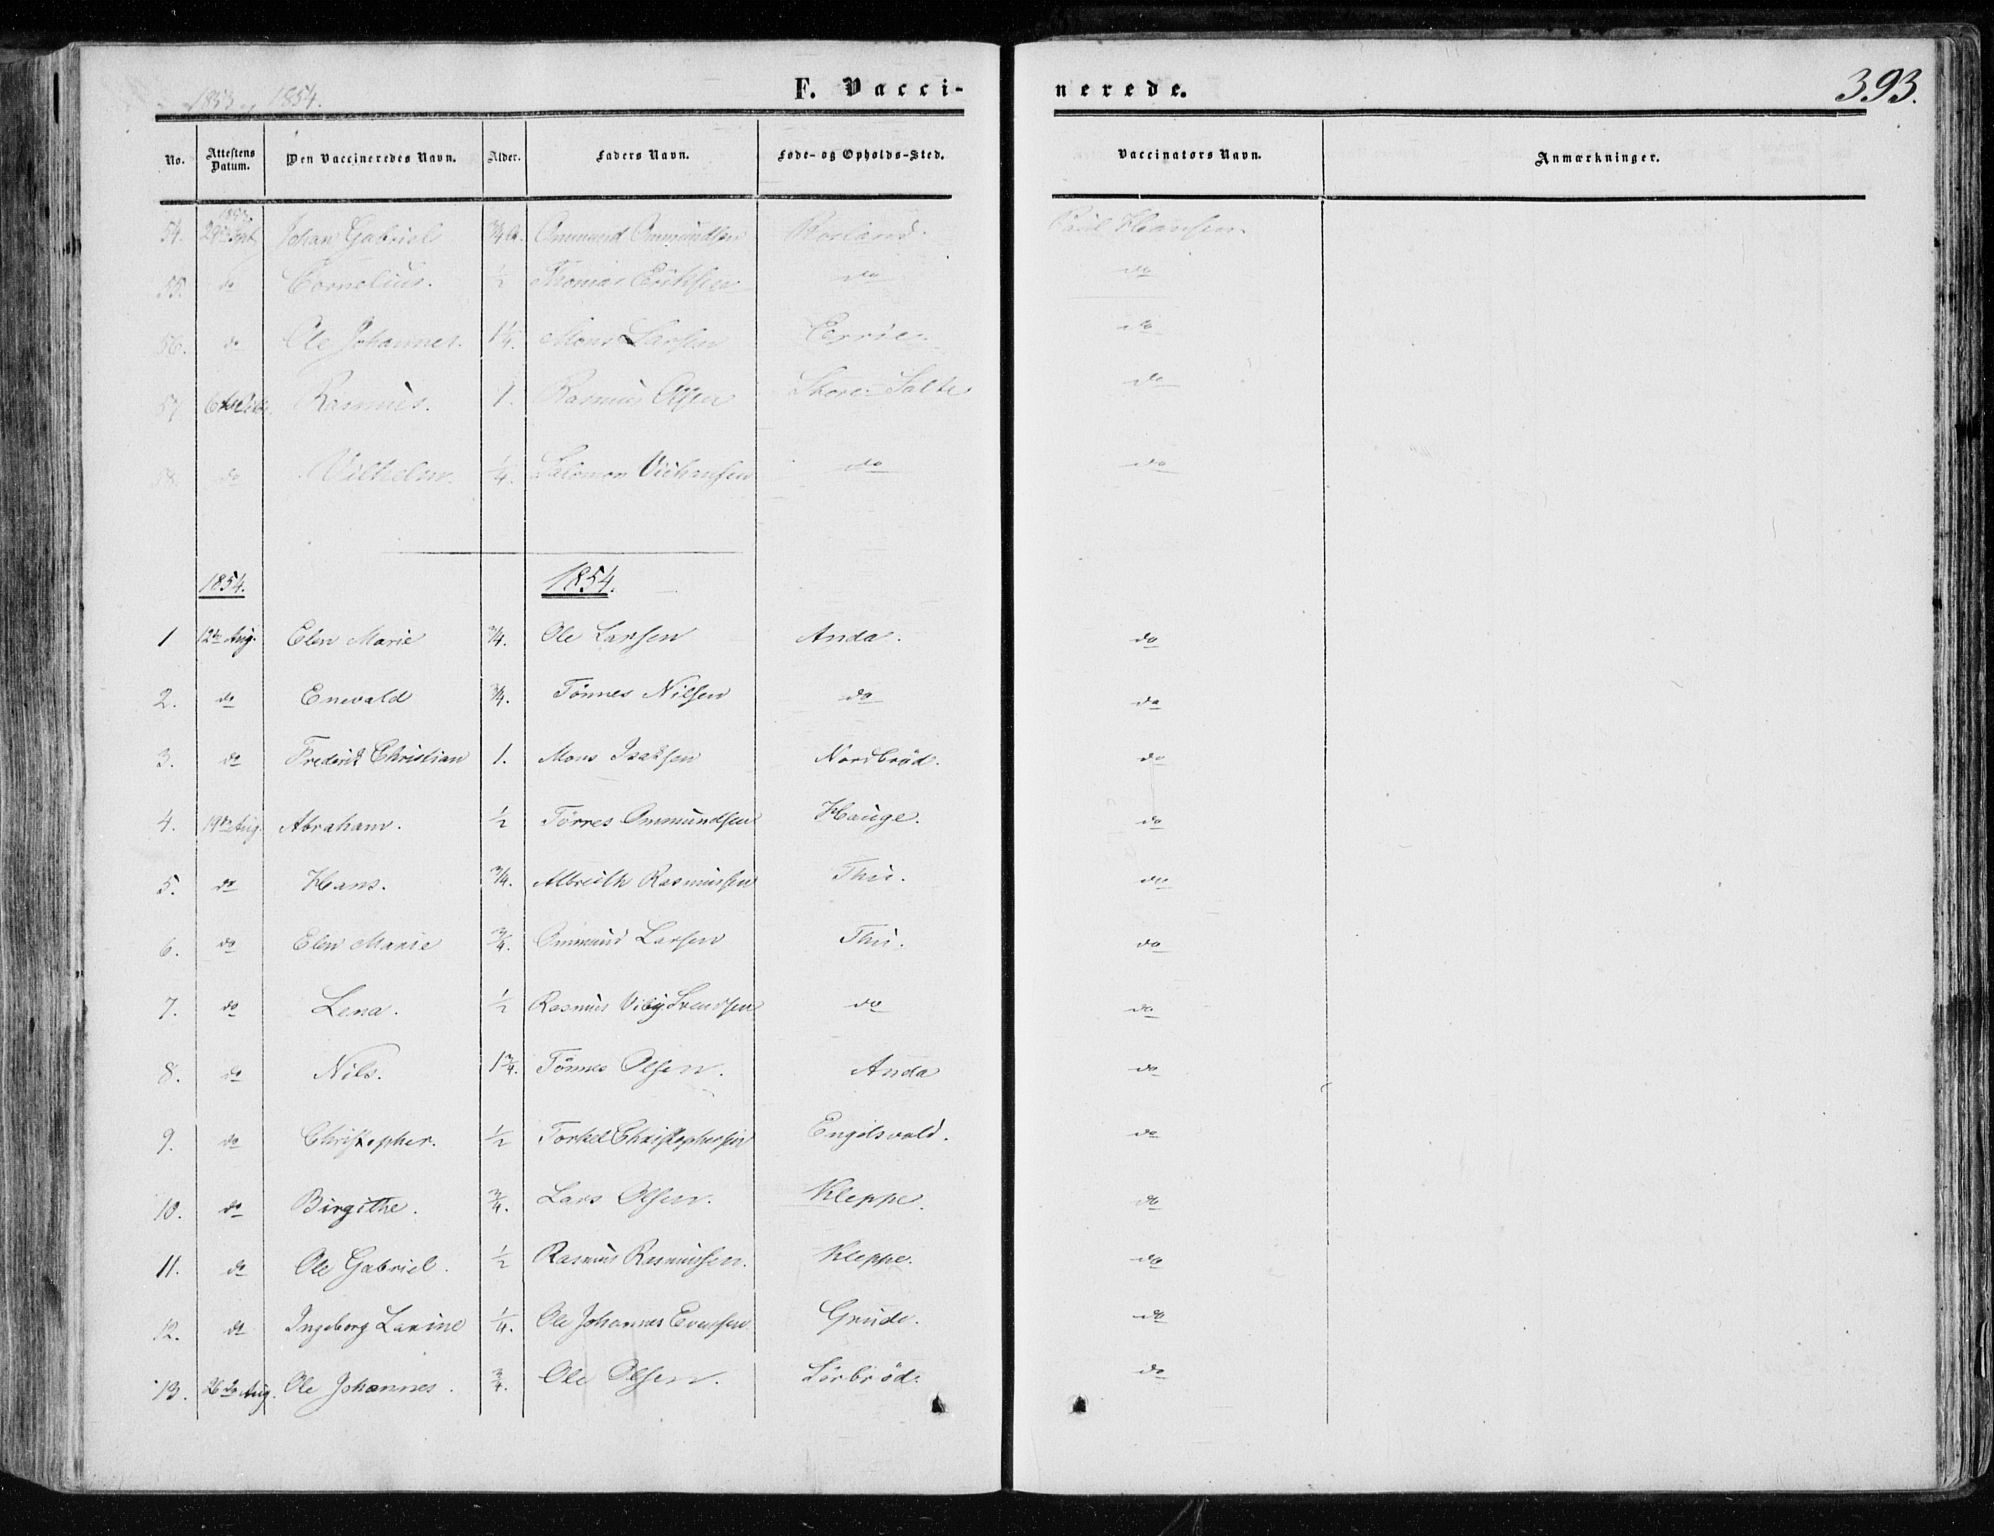 1853 og 1854.
F. Vacci-
nerede.
393.
No. Attestens Datum. Den Vaccineredes Navn. Alder. Faders Navn. Føde- og Opholds-Sted. Vaccinators Navn. Anmærkninger.
1853
54. 29de Sept. Johan Gabriel 3/4 A. Ommund Ommundsen Borland. Paul Hansen.
55. do Cornelius. 1/2 Thomas Eriksen do do
56. do Ole Johannes. 1 1/4. Mons Larsen do
57 Rasmus. 1. Rasmus Store Salte do
58. do Vilhelm. 1/4. Salomon do do
1854. 1854.
1 12te Aug. Elen Marie 3/4. Ole Larsen Anda. do
2. do Enevald 3/4. Tönnes Nilsen do do
3. do Fredrik Christian 1. Mons Isaksen Nordbröd. do
4. 19de Aug. Abraham. 1/2 Törres Ommundsen Hauge. do
5. do Hans. 3/4. Albrecth Rasmussen Thu. do
6. do Elen Marie 3/4. Ommund Larsen Thu. do
7. do Lena. 1/2 Rasmus Viby Svendsen do do
8. do Nils. 1 3/4. Tönnes Olsen. Anda do
9. do Christopher. 1/2 Torkel Christophersen Engelsvold. do
10. do Birgithe. 3/4. Lars Olsen. Kleppe. do
11. do Ole Gabriel. 1/2 Rasmus Rasmussen. Kleppe. do
12. do Ingeborg Laxine 1/4. Ole Johannes Evensen Grude. do
13. 26de Aug. Ole Johannes. 3/4. Ole Olsen. Sörbröd. do